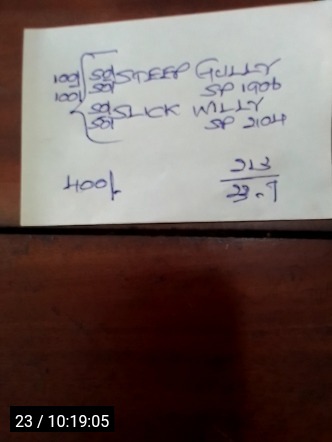 100/ 50/ STEEP GULLY
100/ 50/ SP 1906
50/ SLICK WILLY
50/ SP 2104
400/-
213
23.7
23 / 10:19:05